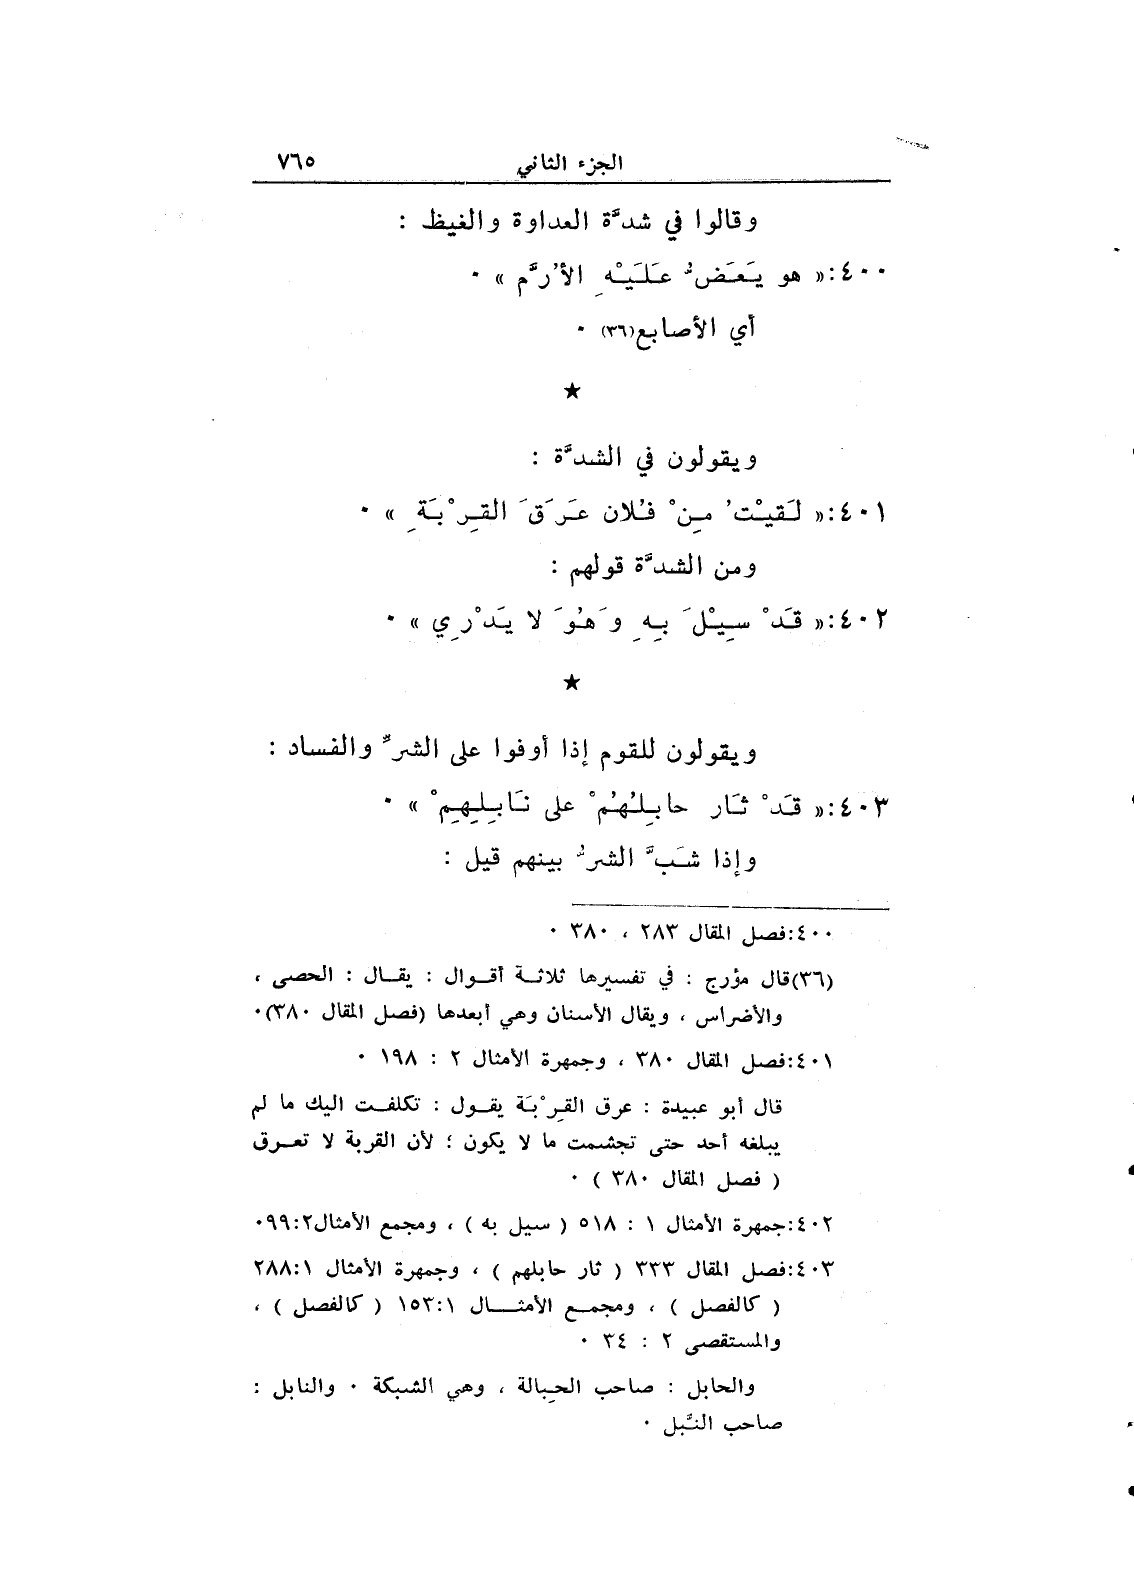 الجزء الثاني ٧٦٥
وقالوا في شدَّة العداوة والغيظ :
٤٠٠:« هو يَعَضُّ عَلَيْهِ الأُرَّم » ٠
أي الأصابع(٣٦) ٠
★
ويقولون في الشدَّة :
٤٠١:« لَقيْتُ مِنْ فُلان عَرَقَ القِرْبَةِ » ٠
ومن الشدَّة قولهم :
٤٠٢:« قَدْ سِيْلَ بِهِ وَهُوَ لا يَدْرِي » ٠
★
ويقولون للقوم إذا أوفوا على الشرِّ والفساد :
٤٠٣:« قَدْ ثَار حابِلُهُمْ على نَابِلِهِمْ » ٠
وإذا شَبَّ الشرُّ بينهم قيل :
٤٠٠:فصل المقال ٢٨٣ ، ٣٨٠ ٠
(٣٦)قال مؤرج : في تفسيرها ثلاثة أقوال : يقال : الحصى ،
والأضراس ، ويقال الأسنان وهي أبعدها (فصل المقال ٣٨٠)٠
٤٠١:فصل المقال ٣٨٠ ، وجمهرة الأمثال ٢ : ١٩٨ ٠
قال أبو عبيدة : عرق القِرْبَة يقول : تكلفت اليك ما لم
يبلغه أحد حتى تجشمت ما لا يكون ؛ لأن القربة لا تعرق
( فصل المقال ٣٨٠ ) ٠
٤٠٢:جمهرة الأمثال ١ : ٥١٨ ( سيل به ) ، ومجمع الأمثال٢:٩٩٠
٤٠٣:فصل المقال ٣٣٣ ( ثار حابلهم ) ، وجمهرة الأمثال ١:٢٨٨
( كالفصل ) ، ومجمع الأمثال ١:١٥٣ ( كالفصل ) ،
والمستقصى ٢ : ٣٤ ٠
والحابل : صاحب الحِبالة ، وهي الشبكة ٠ والنابل :
صاحب النَّبل ٠